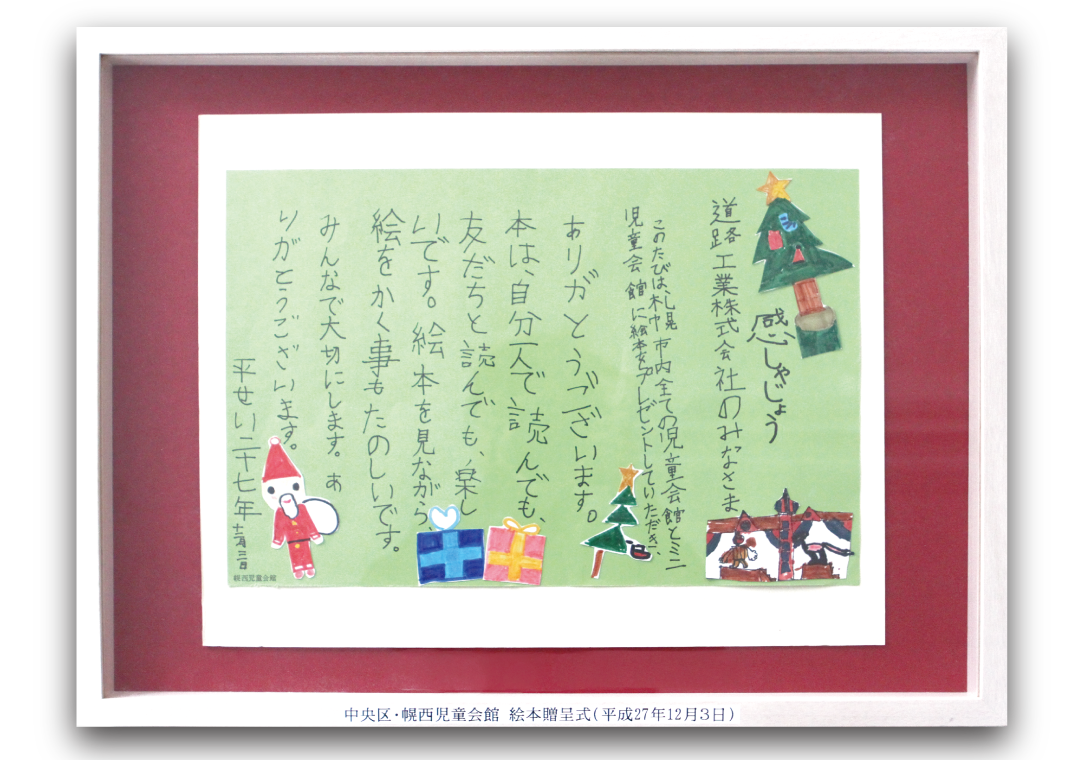 感しゃじょう
道路工業株式会社のみなさま
このたびは、札幌市内全ての児童会館とミニ
児童会館に絵本をプレゼントしていただき、
ありがとうございます。
本は、自分一人で読んでも、
友だちと読んでも、楽し
いです。絵本を見ながら、
絵をかく事もたのしいです。
みんなで大切にします。あ
りがとうございます。
平せい二十七年十二月三日
幌西児童会館
中央区・幌西児童会館 絵本贈呈式(平成27年12月3日)